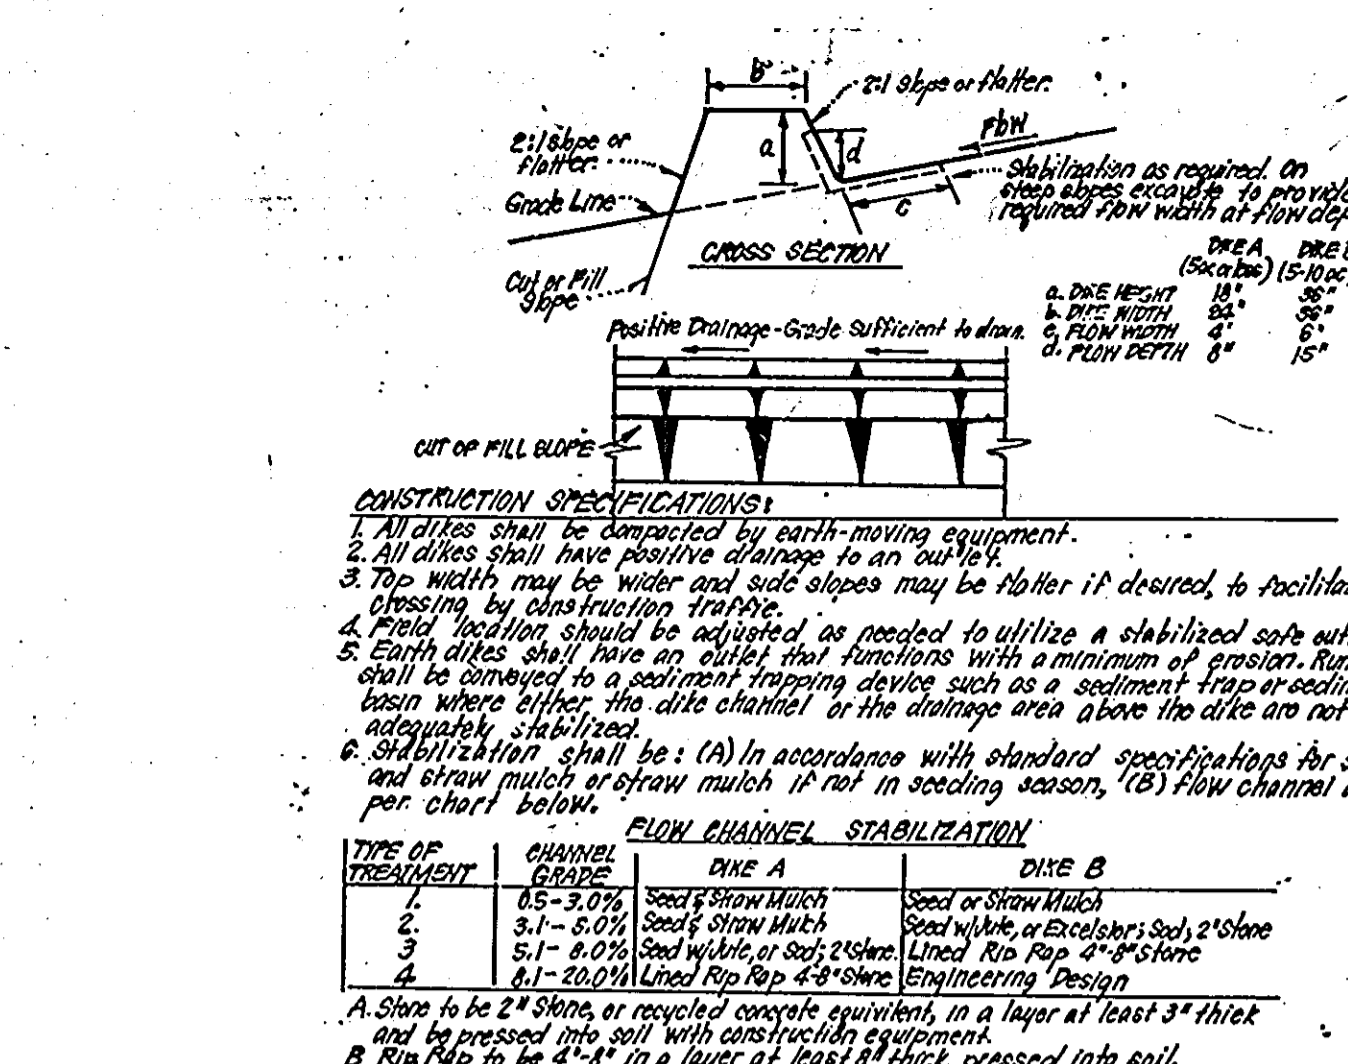 b
2:1 slope or flatter.
Flow
2:1 slope or
flatter.
a
d
Stabilization as required. On
steep slopes excavate to provide
required flow width at flow dep
Grade Line
c
CROSS SECTION
Cut or Fill
Slope
DIKE A DIKE B
(5ac or less) (5-10 ac
a. DIKE HEIGHT 18" 36"
b. DIKE WIDTH 24" 36"
c. FLOW WIDTH 4' 6'
d. FLOW DEPTH 8" 15"
Positive Drainage-Grade Sufficient to drain.
CUT OF FILL SLOPE
CONSTRUCTION SPECIFICATIONS:
1. All dikes shall be compacted by earth-moving equipment.
2. All dikes shall have positive drainage to an outlet.
3. Top width may be wider and side slopes may be flatter if desired, to facilita
crossing by construction traffic.
4. Field location should be adjusted as needed to utilize a stabilized safe out
5. Earth dikes shall have an outlet that functions with a minimum of erosion. Run
shall be conveyed to a sediment trapping device such as a sediment trap or sedim
basin where either the dike channel or the drainage area above the dike are not
adequately stabilized.
6. Stabilization shall be: (A) In accordance with standard specifications for s
and straw mulch or straw mulch if not in seeding season, (B) flow channel a
per chart below.
FLOW CHANNEL STABILIZATION
TYPE OF TREATMENT CHANNEL GRADE DIKE A DIKE B
1. 0.5-3.0% Seed & Straw Mulch Seed or Straw Mulch
2. 3.1-5.0% Seed & Straw Mulch Seed w/Jute, or Excelsior; Sod; 2" Stone
3 5.1-8.0% Seed w/Jute, or Sod; 2" Stone. Lined Rip Rap 4"-8" Stone
4. 8.1-20.0% Lined Rip Rap 4-8" Stone Engineering Design
A. Stone to be 2" Stone, or recycled concrete equivilent, in a layer at least 3" thick
and be pressed into soil with construction equipment.
B. Rip Rap to be 4"-8" in a layer at least 8" thick pressed into soil.